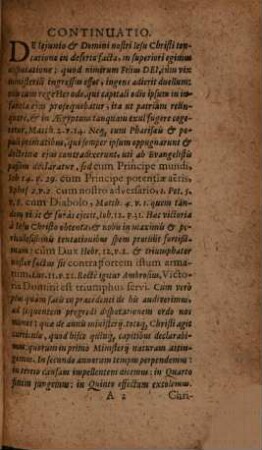 CONTINUATIO.
DE Iejunio & Domini nostri Iesu Christi ten-
tatione in deserto facta, in superiori egimus
disputatione: quod nimirum Filius DEI, cùm vix
ministerii ingressus esset, ingens adierit duellum:
non cum rege Herode, qui capitali odio ipsum in in-
fantia ejus prosequebatur, ita ut patriam relin-
queret, & in Ægyptum tanquam exul fugere coge-
retur, Matth. 2. v. 14. Neq, cum Pharisæis & po-
puli primatibus, qui semper ipsum oppugnârunt &
doctrinæ ejus contradixerunt, uti ab Evangelistis
passim declaratur, sed cum Principe mundi,
Ioh. 14. v. 29. cum Principe potentiæ aëris
Ephes. 2. v. 2. cum nostro adversario, 1. Pet. 5.
v. 8. cum Diabolo, Matth. 4. v. 1. quem tan-
dem vicit & foràs ejecit, Ioh. 12. v. 31. Hac victoria
à Iesu Christo obtenta, & nobis in maximis &
periculosissimis tentationibus spem promittit fortissi-
mam: cùm Dux Hebr. 12. v. 2. & triumphator
noster factus sit contra fortem illum arma-
tum, Luc. 11. v. 21. Rectè igitur Ambrosius, Victo-
ria Domini est triumphus servi. Cum verò
plus quàm satis in præcedenti de his audiverimus,
ad sequentem progredi disputationem ordo nos
monet: quæ de annis ministerij, totiq, Christi aget
in secundo annorum tempus perpendemus:
in tertio causam impellentem dicemus: in Quarto
finem jungemus: in Quinto effectum extollemus.
A 2 Chri-